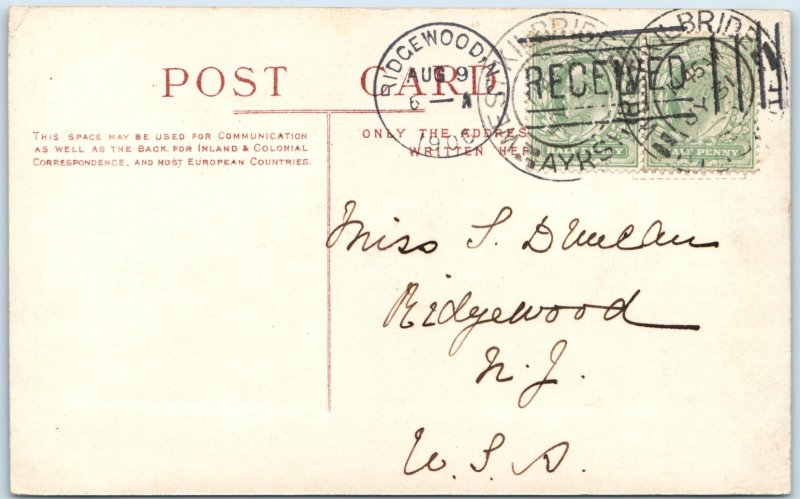 POST CARD
THIS SPACE MAY BE USED FOR COMMUNICATION
AS WELL AS THE BACK, FOR INLAND & COLONIAL
CORRESPONDENCE, AND MOST EUROPEAN COUNTRIES.
ONLY THE ADDRES
WRITTEN HER
RIDGEWOOD N.J.
AUG 9
6 — A
1906
RECEIVED
KILBRIDE
AYRS
KILBRIDE
HALF PENNY
HALF PENNY
Miss S. Duncan
Ridgewood
N. J.
U. S. A.